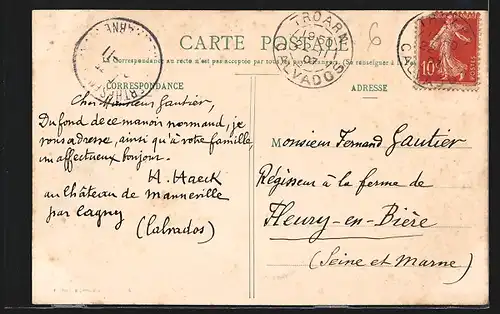 TROARN
CALVADOS
6
CARTE POSTALE
10c
POSTES
Correspondance au recto n'est pas acceptée par tous les pays
(Se renseigner à
CORRESPONDANCE
ADRESSE
Cher Monsieur Gautier,
Du fond de ce manoir normand, je
vous adresse, ainsi qu'à votre famille,
un affectueux bonjour.
H. Haeck
au Château de Manneville
par Cagny
(Calvados)
Monsieur Fernand Gautier
Régisseur à la ferme de
Fleury-en-Bière
(Seine et Marne)